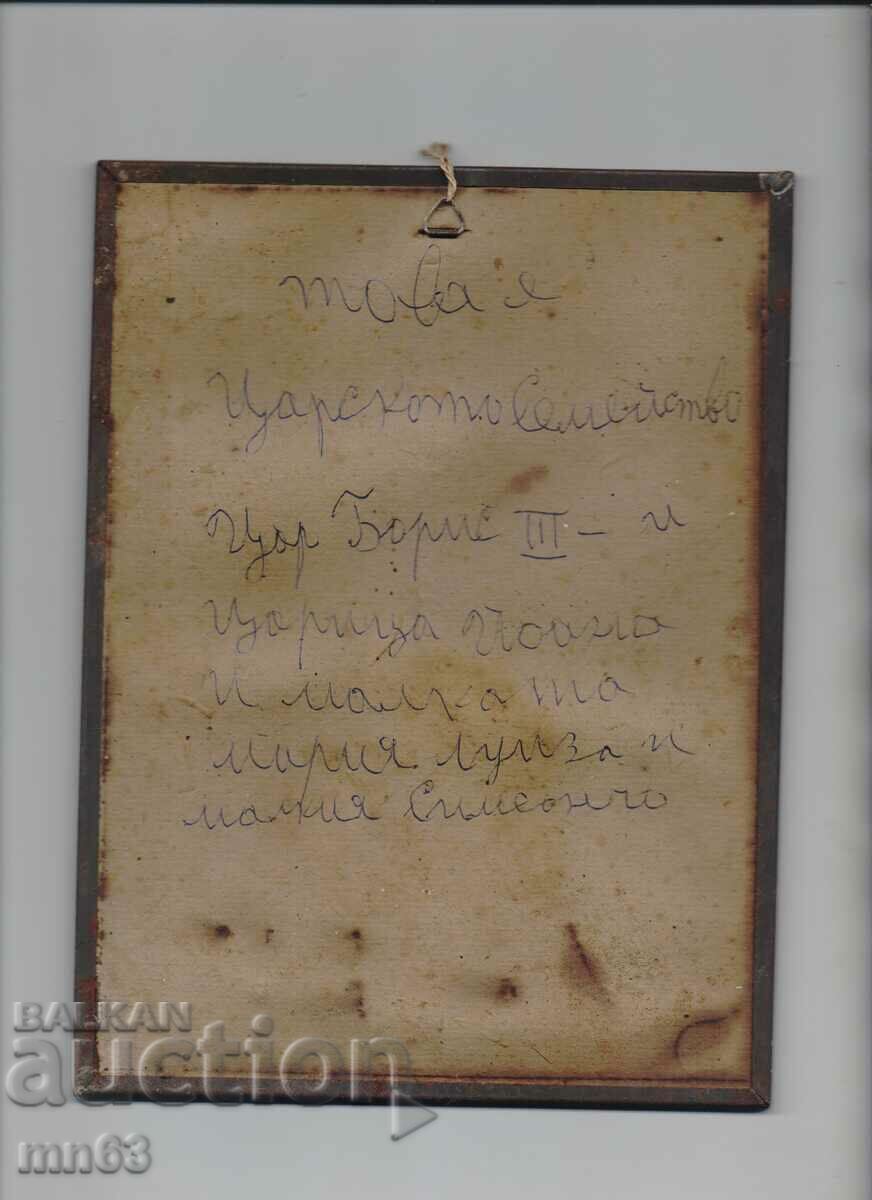 това е
Царското Семейство
Цар Борис III - и
Царица Йоана
и малката
Мария Луиза и
малкия Симеончо
BALKAN
auction
mn63